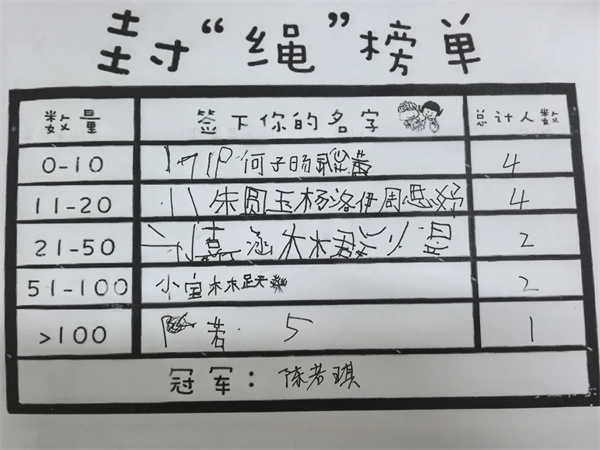 封“绳”榜单
数量 签下你的名字 总计人数
0-10 何子旸 4
11-20 朱圆玉杨洛伊周思妤 4
21-50 嘉涵木木君羊 2
51-100 小宝林林 2
>100 若 5 1
冠军： 陈若琪